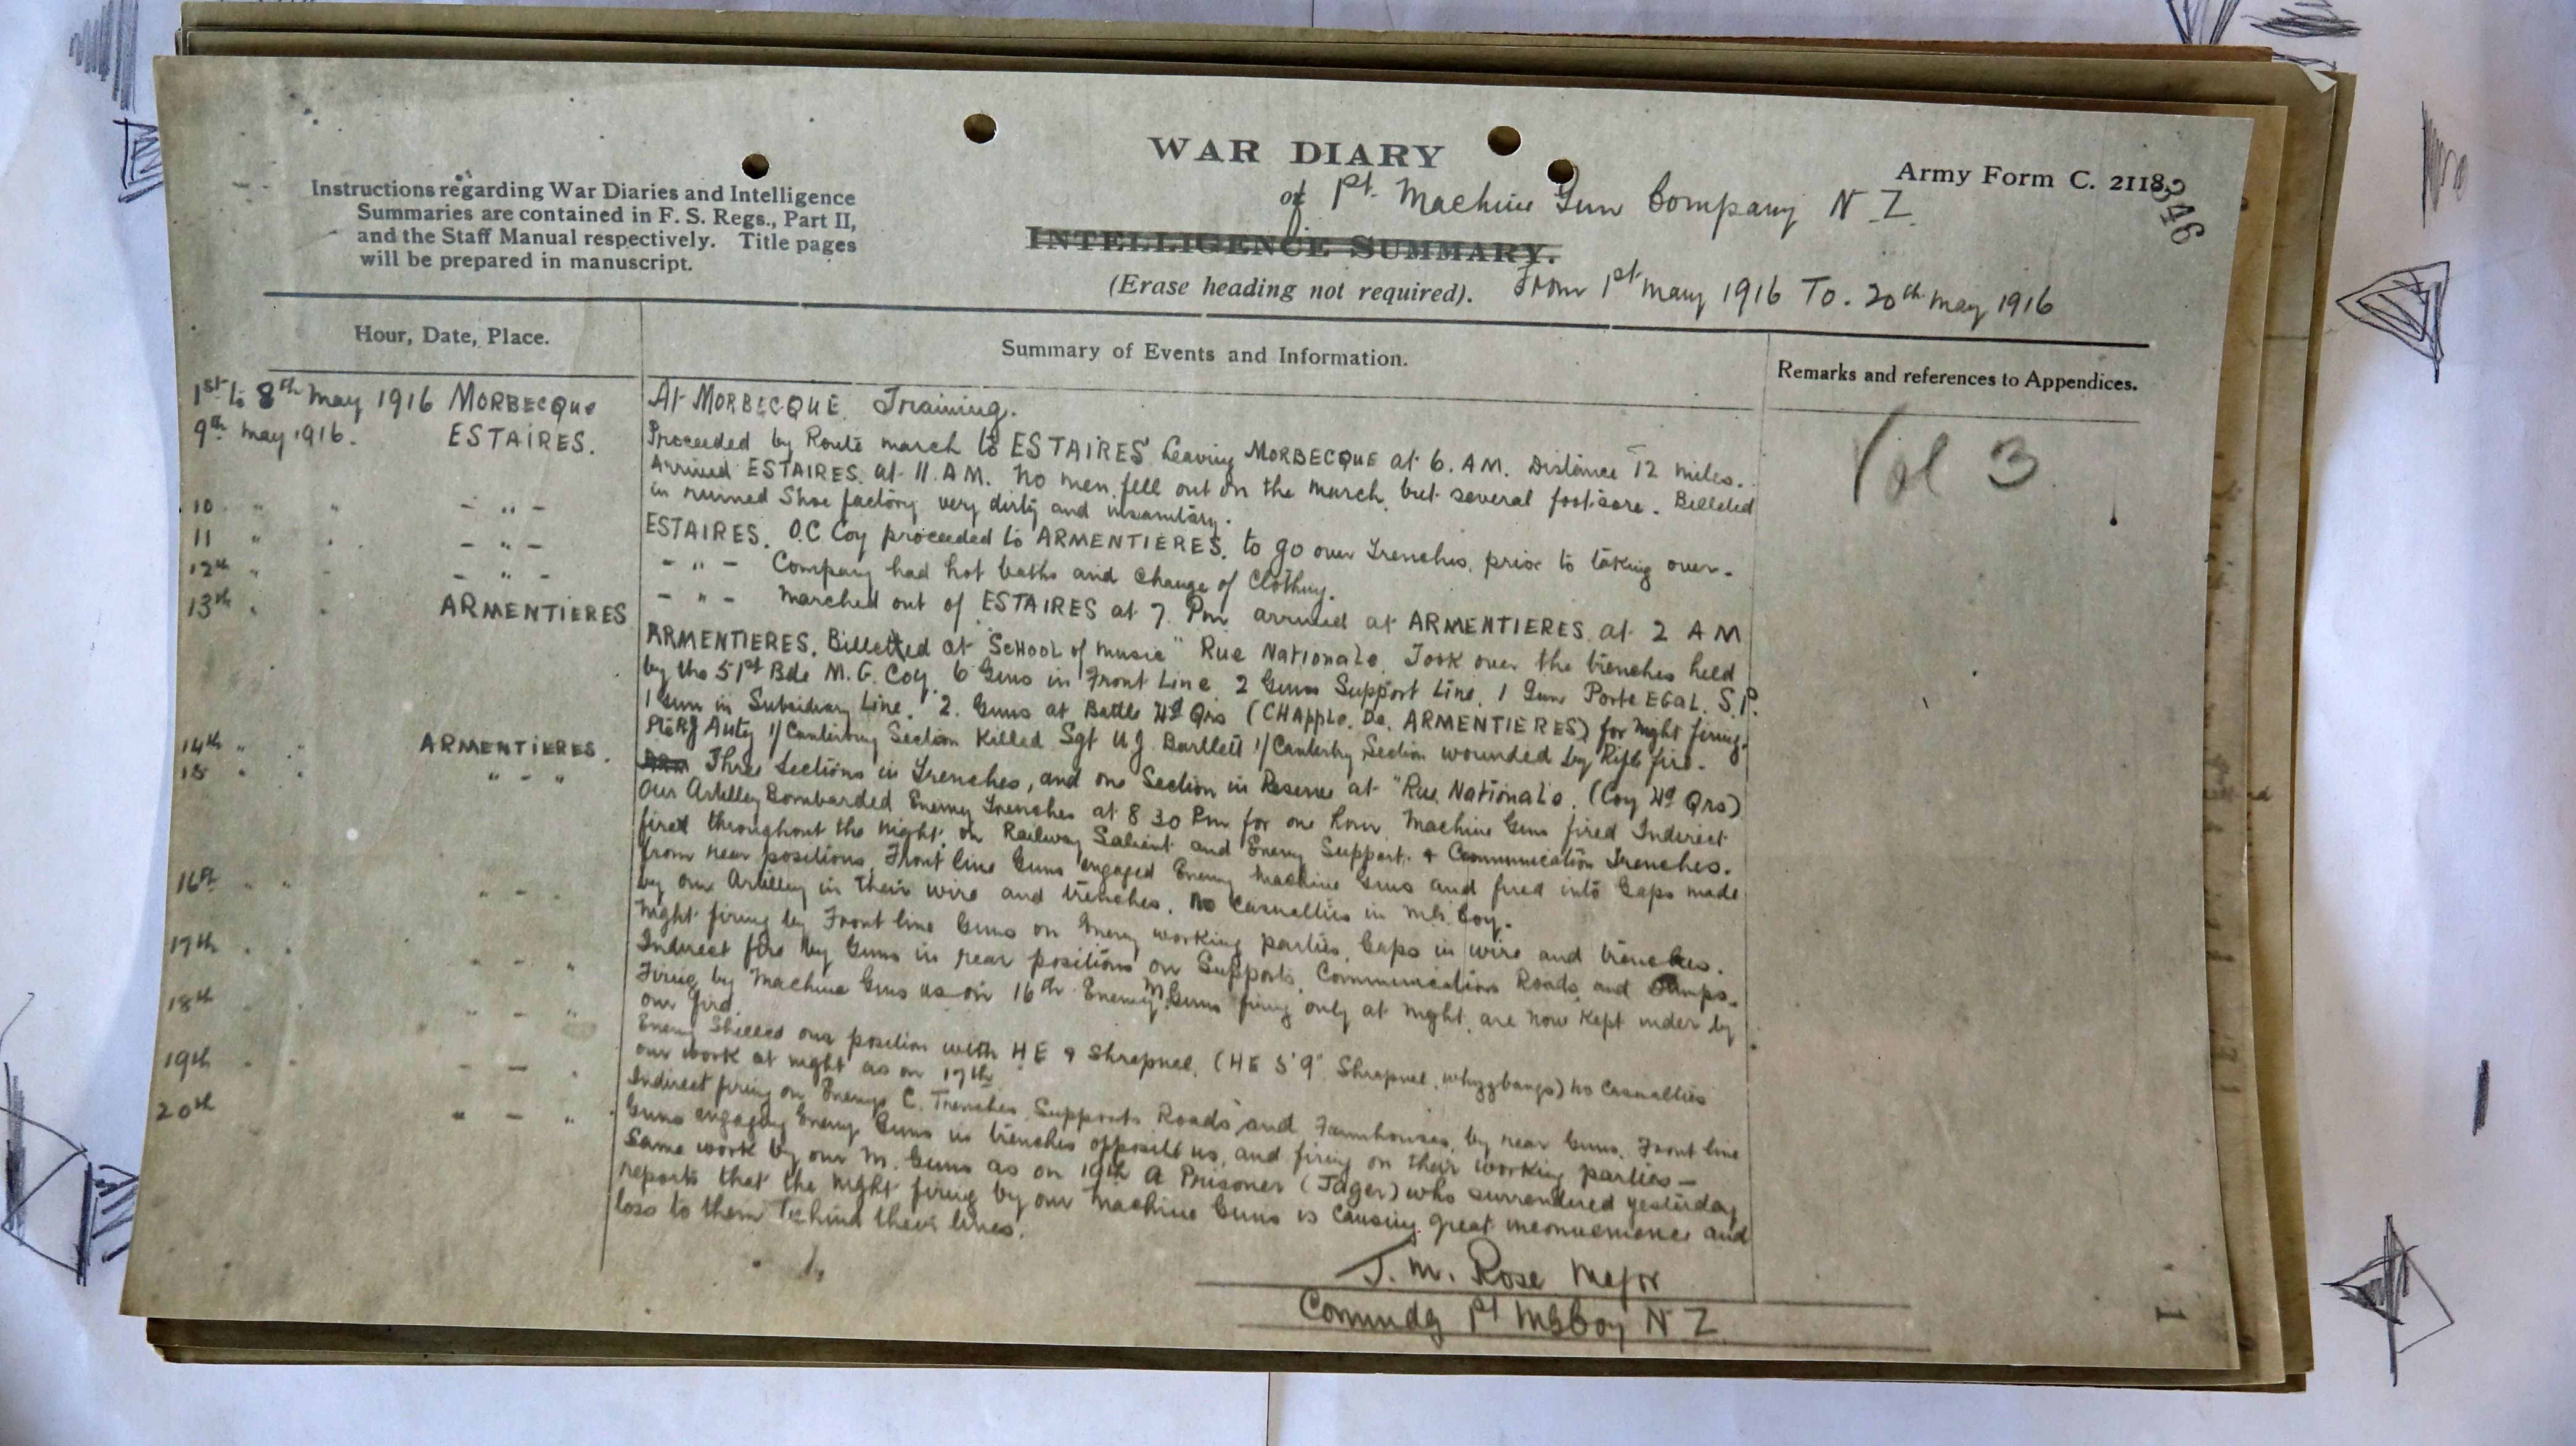 WAR DIARY
of 1st. Machine Gun Company N Z.
Army Form C. 2118.
346
Instructions regarding War Diaries and Intelligence
Summaries are contained in F. S. Regs., Part II,
and the Staff Manual respectively. Title pages
will be prepared in manuscript.
INTELLIGENCE SUMMARY.
(Erase heading not required).
From 1st May 1916 To. 20th May 1916
Hour, Date, Place.
Summary of Events and Information.
Remarks and references to Appendices.
Vol 3
1st to 8th May 1916 MORBECQUE
At MORBECQUE. Training.
9th May 1916. ESTAIRES.
Proceeded by Route march to ESTAIRES Leaving MORBECQUE at 6. AM. Distance 12 miles.
Arrived ESTAIRES. at 11. A.M. No men fell out on the march, but several footsore. Billeted
in ruined Shoe factory very dirty and insanitary.
10 " " - " -
ESTAIRES. O.C Coy proceeded to ARMENTIERES. to go over Trenches, prior to taking over.
11 " . - " -
- " - Company had hot baths and change of Clothing.
12th " - - " -
- " - Marched out of ESTAIRES at 7. Pm arrived at ARMENTIERES at 2 A M
13th . - ARMENTIERES
ARMENTIERES. Billetted at "School of Music" Rue Nationale. Took over the trenches held
by the 51st Bde M. G. Coy. 6 Guns in Front Line. 2 Guns Support Line. 1 Gun Porte EGAL. S.P.
1 Gun in Subsidiary Line. 2. Guns at Battle Hd Qrs (CHAPPLE. De. ARMENTIERES) for Night firing.
Pte RJ Auty 1/Canterbury Section Killed Sgt W.J. Bartlett 1/Canterby Section wounded by Rifle fire.
14th " " ARMENTIERES.
Three Sections in Trenches, and one Section in Reserve at "Rue Nationale. (Coy Hd Qrs)
15 " " " - "
Our Artilley Bombarded Enemy Trenches at 8 30 Pm for one hour. Machine Guns fired Indirect
fired throughout the Night, on Railway Salient and Enemy Support & Communication Trenches.
from rear positions. Front line Guns engaged Enemy Machine Guns and fired into Gaps made
by our Artilley in their wire and trenches. No Casualties in MG. Coy.
16th " " " - "
Night firing by Front line Guns on Enemy working parties, Gaps in wire and trenches.
Indirect fire by Guns in rear positions on Supports, Communication Roads, and Dumps.
17th . . " - "
Firing by Machine Guns as on 16th Enemy M. Guns firing only at night, are now kept under by
our fire.
18th . " - "
Enemy Shelled our position with H E & Shrapnel. (HE 5'9" Shrapnel, whizzbangs) No Casualties
our work at night as on 17th
19th - - - - .
Indirect firing on Enemys C. Trenches, Supports Roads and Farmhouses, by rear Guns. Front line
Guns engaging Enemy Guns in trenches opposite us, and firing on their working parties -
20th " - "
Same work by our M. Guns as on 19th A Prisoner (Jager) who surrendered yesterday
reports that the Night firing by our Machine Guns is causing great inconvenience and
loss to them behind their lines.
J. M. Rose Major
Commdg 1st MGCoy N Z
1